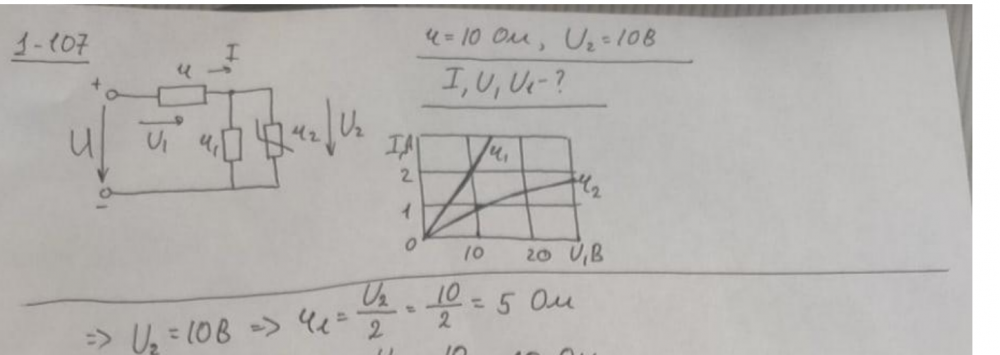 1-107
r = 10 Ом, U₂ = 10В
I, U, U₁ - ?
I
+
r
U
U₁
r₁
r₂
U₂
-
I,А
2
1
0
10
20
U,В
r₁
r₂
=> U₂ = 10В => r₁ = U₂/2 = 10/2 = 5 Ом